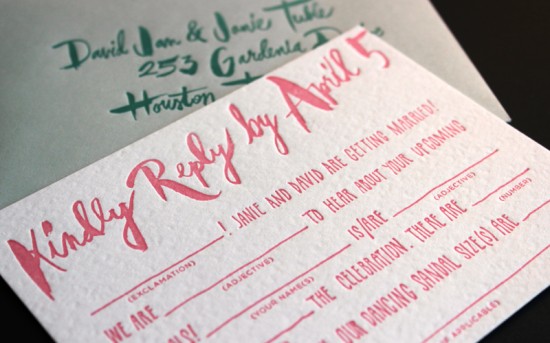 David Jam & Janie Tubie
253 Gardenia
Houston
Kindly Reply by April 5
! JANIE AND DAVID ARE GETTING MARRIED!
(EXCLAMATION)
WE ARE TO HEAR ABOUT YOUR UPCOMING
(ADJECTIVE)
IS/ARE
(YOUR NAME(S)) (ADJECTIVE)
THE CELEBRATION. THERE ARE
(NUMBER)
OUR DANCING SANDAL SIZE(S) ARE